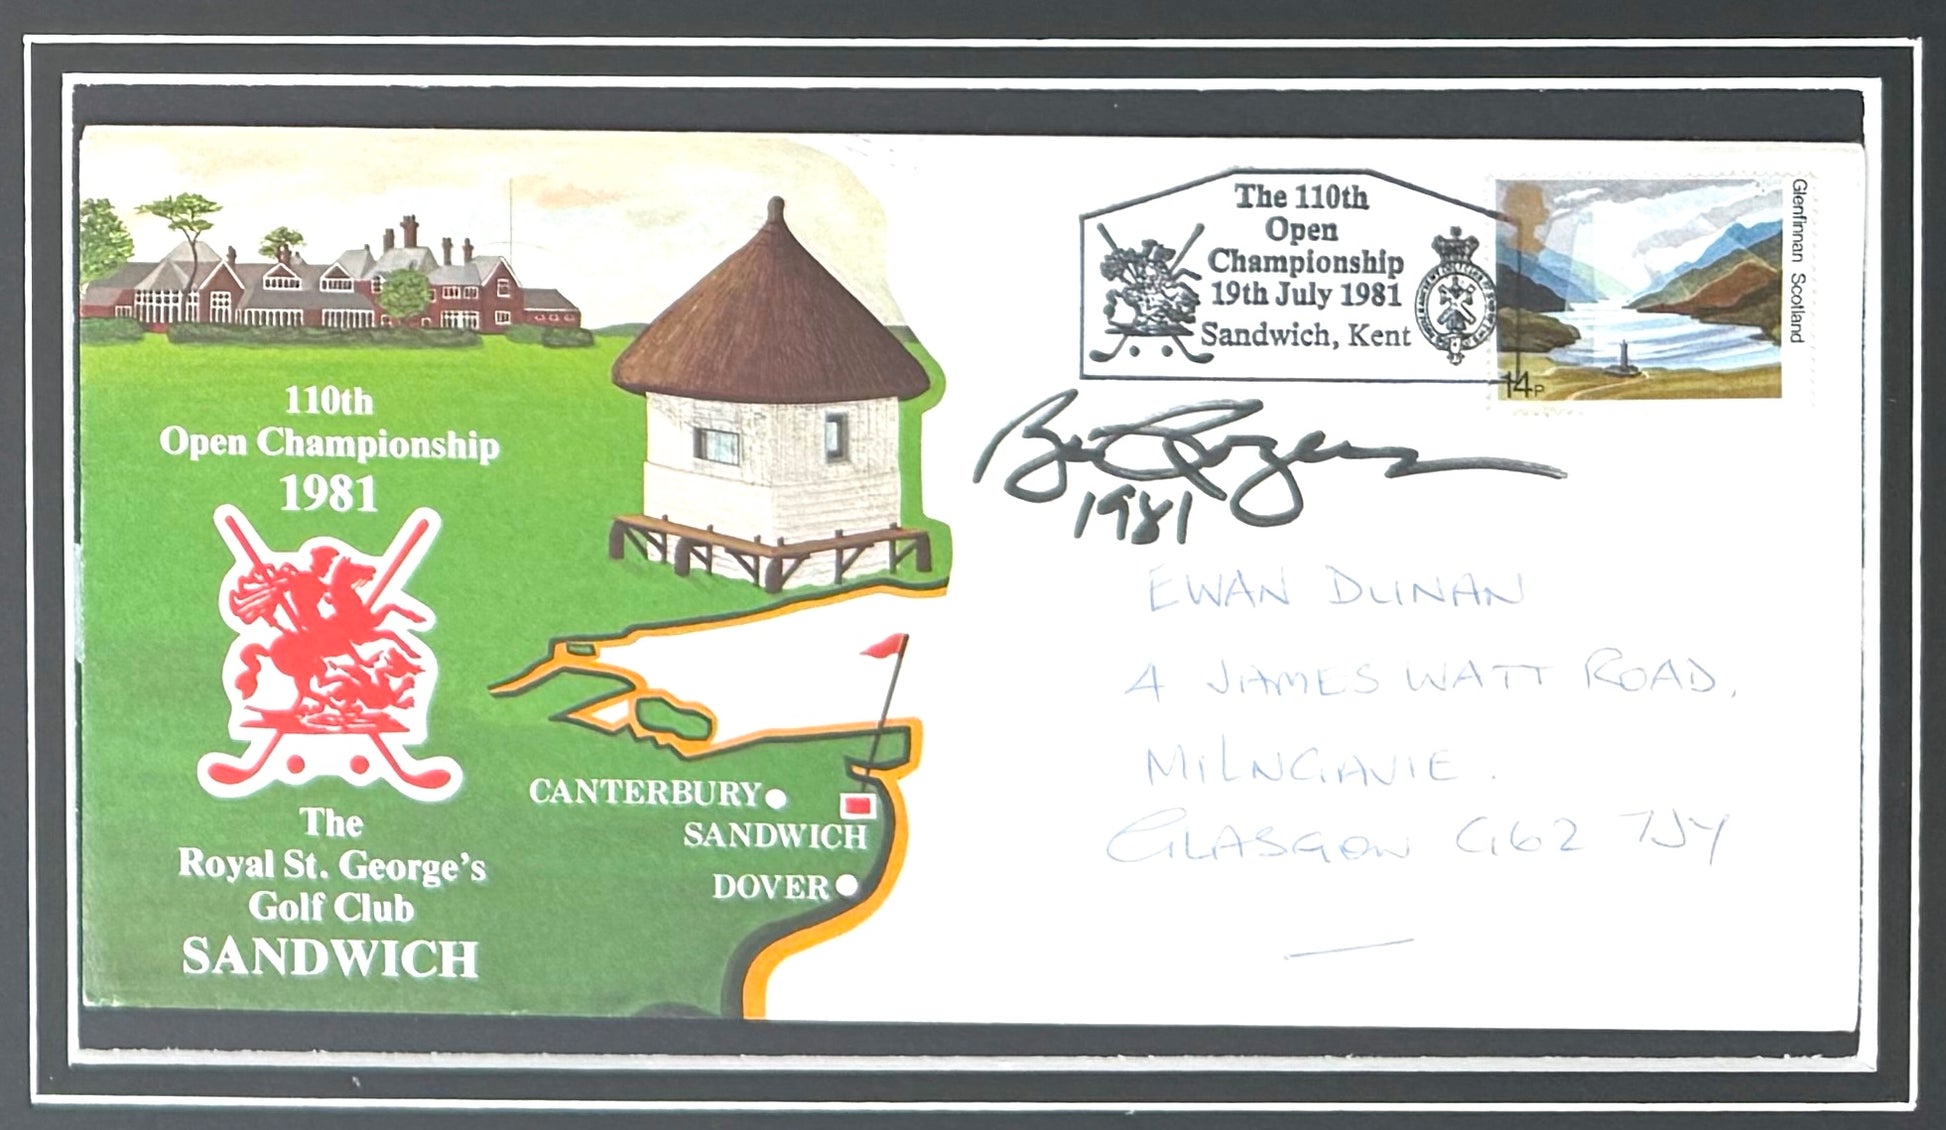 110th
Open Championship
1981
The
Royal St. George's
Golf Club
SANDWICH
CANTERBURY
SANDWICH
DOVER
The 110th
Open
Championship
19th July 1981
Sandwich, Kent
Glenfinnan Scotland
14P
Bill Rogers
1981
EWAN DUNAN
4 JAMES WATT ROAD,
MILNGAVIE.
GLASGOW G62 7JY